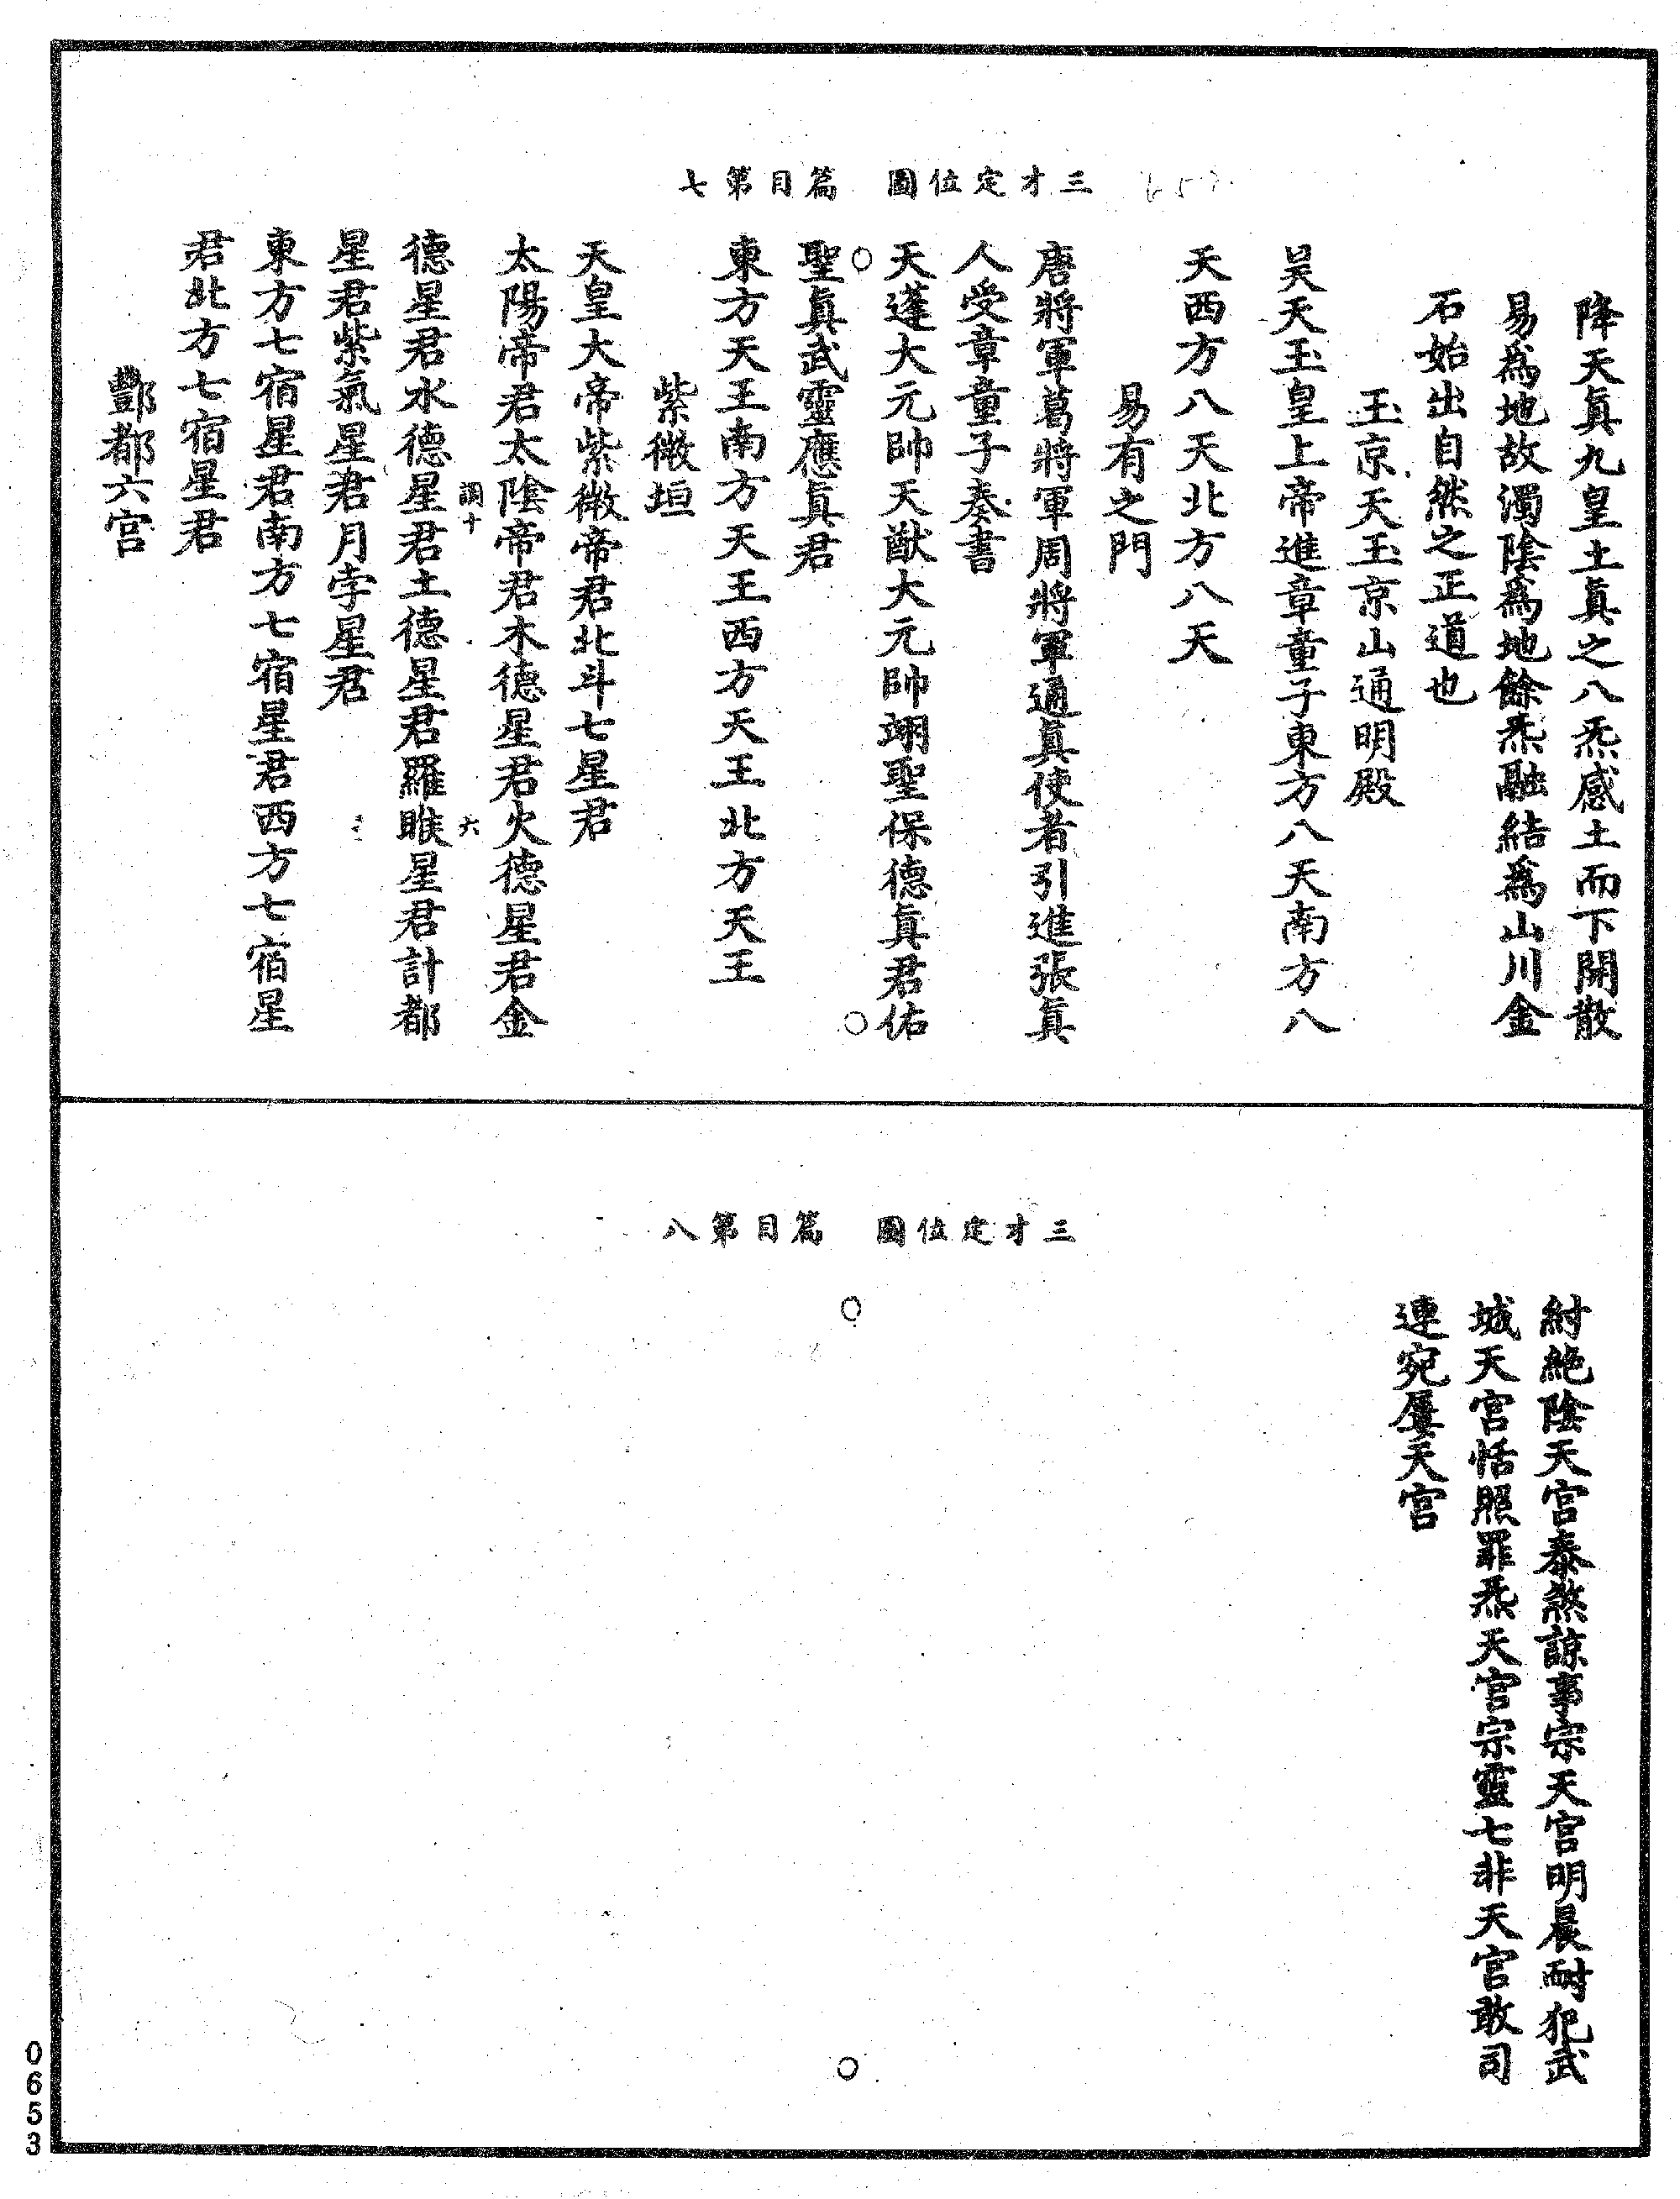 三才定位圖　篇目第七
降天眞九皇土眞之八炁感土而下開散
易為地故濁陰為地餘炁融結為山川金
石始出自然之正道也
玉京天玉京山通明殿
昊天玉皇上帝進章童子東方八天南方八
天西方八天北方八天
易有之門
唐將軍葛將軍周將軍通眞使者引進張眞
人受章童子奏書
天蓬大元帥天猷大元帥翊聖保德眞君佑
聖眞武靈應眞君
東方天王南方天王西方天王北方天王
紫微垣
天皇大帝紫微帝君北斗七星君
太陽帝君太陰帝君木德星君火德星君金
調十　六
德星君水德星君土德星君羅睺星君計都
星君紫氣星君月孛星君
東方七宿星君南方七宿星君西方七宿星
君北方七宿星君
酆都六宫
三才定位圖　篇目第八
紂絶陰天宫泰煞諒事宗天宫明晨耐犯武
城天宫恬照罪炁天宫宗靈七非天宫敢司
連宛屢天宫
0653